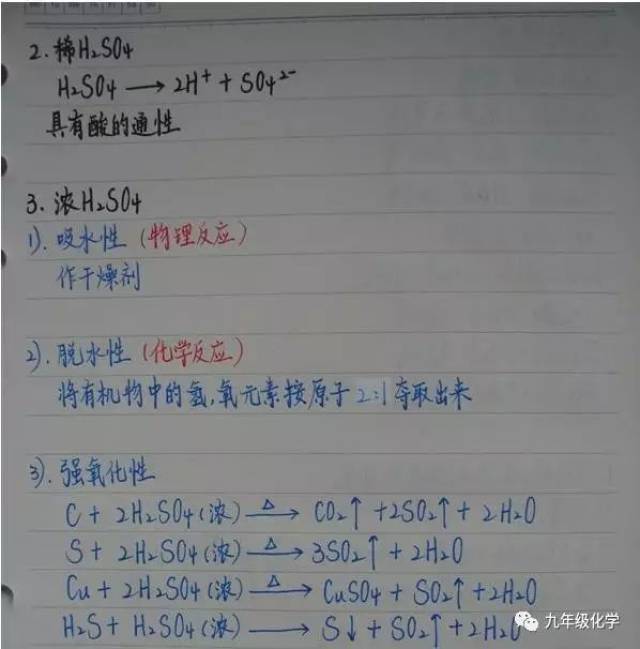 2. 稀H₂SO₄
H₂SO₄ ⟶ 2H⁺ + SO₄²⁻
具有酸的通性
3. 浓H₂SO₄
1). 吸水性 (物理反应)
作干燥剂
2). 脱水性 (化学反应)
将有机物中的氢,氧元素按原子2:1夺取出来
3). 强氧化性
C + 2H₂SO₄(浓) —△→ CO₂↑ +2SO₂↑ + 2H₂O
S + 2H₂SO₄(浓) —△→ 3SO₂↑ + 2H₂O
Cu + 2H₂SO₄(浓) —△→ CuSO₄ + SO₂↑ +2H₂O
H₂S + H₂SO₄(浓) ⟶ S↓ + SO₂↑ +2H₂O
九年级化学